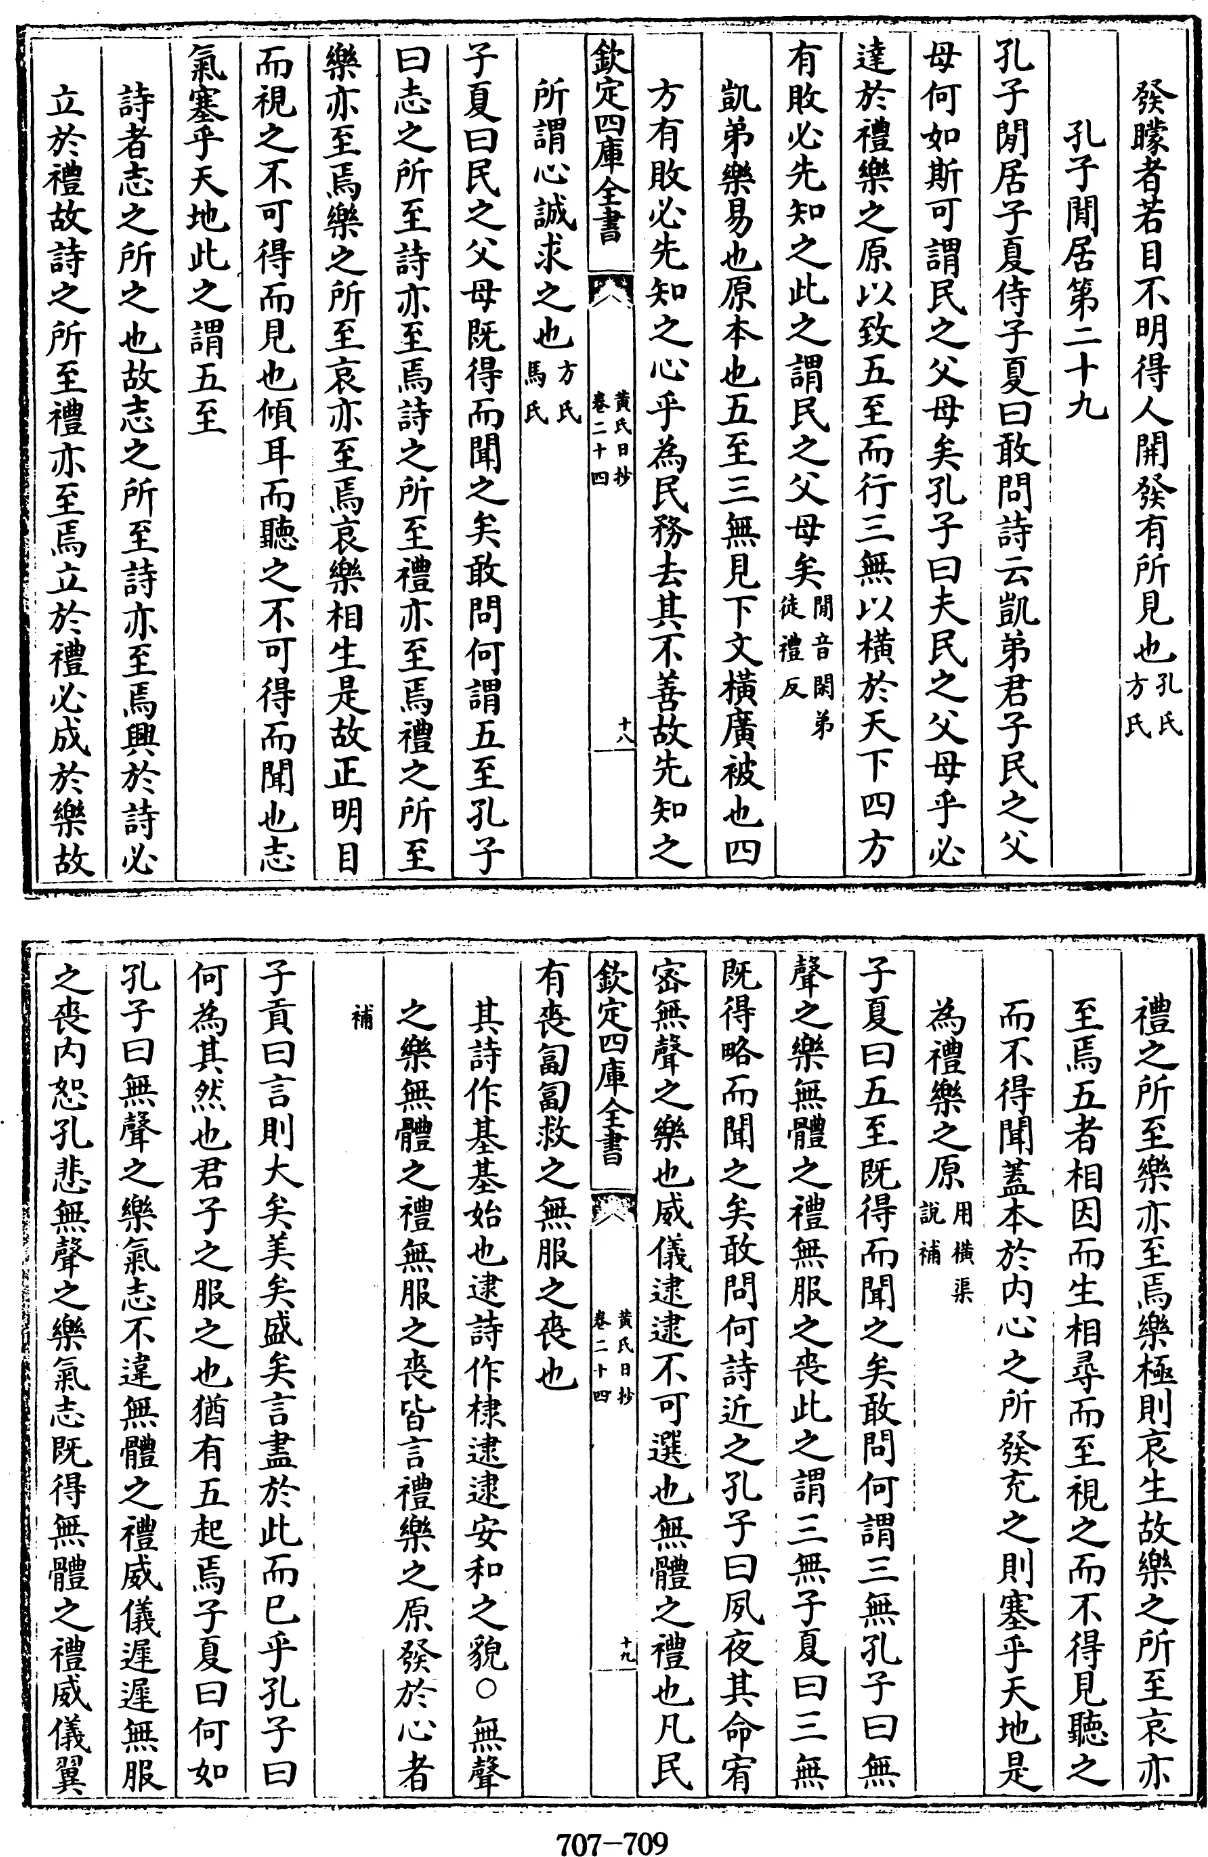 發矇者若目不明得人開發有所見也孔氏方氏
孔子閒居第二十九
孔子閒居子夏侍子夏曰敢問詩云凱弟君子民之父
母何如斯可謂民之父母矣孔子曰夫民之父母乎必
達於禮樂之原以致五至而行三無以橫於天下四方
有敗必先知之此之謂民之父母矣閒音閑弟徒禮反
凱弟樂易也原本也五至三無見下文橫廣被也四
方有敗必先知之心乎為民務去其不善故先知之
欽定四庫全書
黃氏日抄
卷二十四
十八
所謂心誠求之也方氏馬氏
子夏曰民之父母既得而聞之矣敢問何謂五至孔子
曰志之所至詩亦至焉詩之所至禮亦至焉禮之所至
樂亦至焉樂之所至哀亦至焉哀樂相生是故正明目
而視之不可得而見也傾耳而聽之不可得而聞也志
氣塞乎天地此之謂五至
詩者志之所之也故志之所至詩亦至焉興於詩必
立於禮故詩之所至禮亦至焉立於禮必成於樂故
禮之所至樂亦至焉樂極則哀生故樂之所至哀亦
至焉五者相因而生相尋而至視之而不得見聽之
而不得聞蓋本於内心之所發充之則塞乎天地是
為禮樂之原用橫渠說補
子夏曰五至既得而聞之矣敢問何謂三無孔子曰無
聲之樂無體之禮無服之喪此之謂三無子夏曰三無
既得略而聞之矣敢問何詩近之孔子曰夙夜其命宥
密無聲之樂也威儀逮逮不可選也無體之禮也凡民
欽定四庫全書
黃氏日抄
卷二十四
十九
有喪匍匐救之無服之喪也
其詩作基基始也逮詩作棣逮逮安和之貌○無聲
之樂無體之禮無服之喪皆言禮樂之原發於心者
補
子貢曰言則大矣美矣盛矣言盡於此而已乎孔子曰
何為其然也君子之服之也猶有五起焉子夏曰何如
孔子曰無聲之樂氣志不違無體之禮威儀遲遲無服
之喪内恕孔悲無聲之樂氣志既得無體之禮威儀翼
707-709